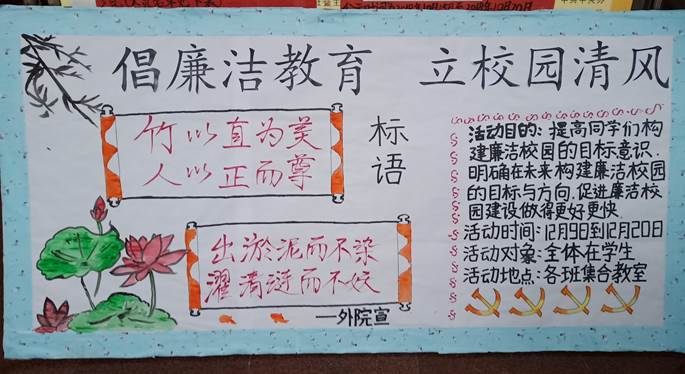 倡廉洁教育 立校园清风
竹以直为美
人以正而尊
标语
出淤泥而不染
濯清涟而不妖
—外院宣
活动目的:提高同学们构
建廉洁校园的目标意识.
明确在未来构建廉洁校园
的目标与方向.促进廉洁校
园建设做得更好更快.
活动时间:12月9日到12月20日
活动对象:全体在学生
活动地点:各班集合教室